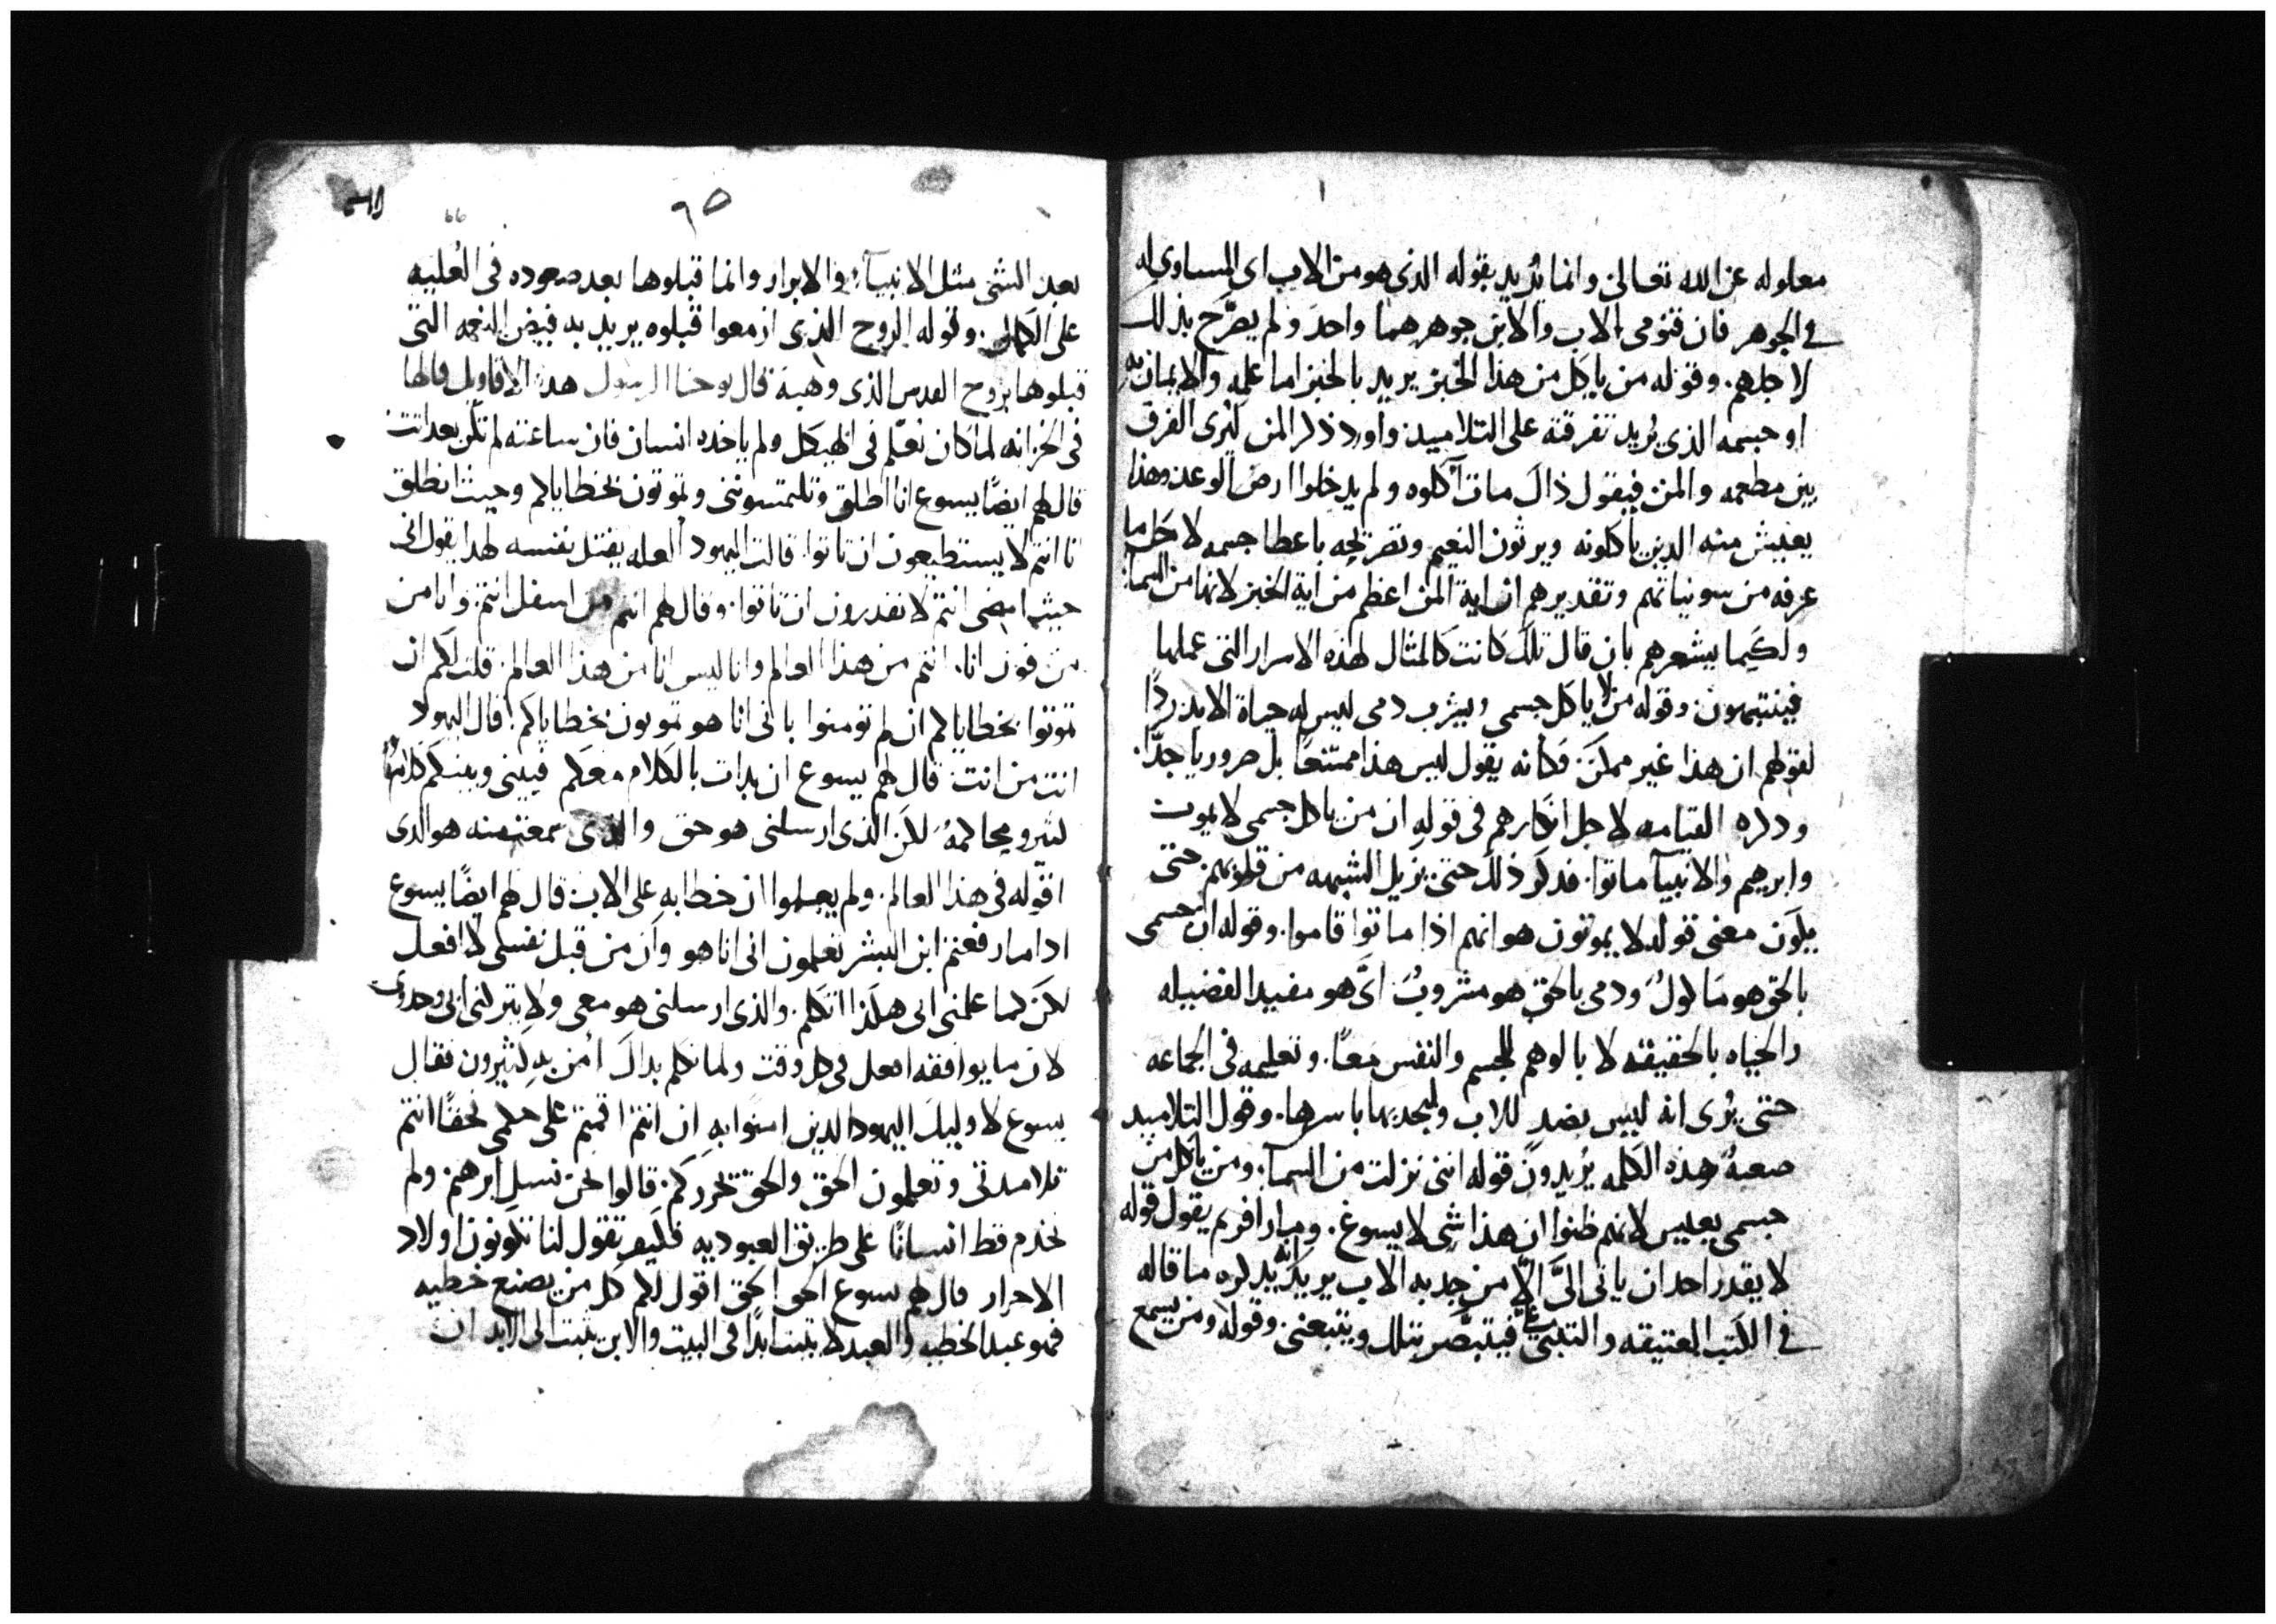 معلوله عن الله تعالى وانما يُريد بقوله الذي هو من الاب اى المساوى له
في الجوهر فان قنومى الاب والابن جوهرهما واحد ولم يصّرح بذلك
لاجلهم. وقوله من ياكل من هذا الخبز يريد بالخبز اما علمه والايمان به
او جسمه الذي يُريد تفرقته على التلاميد: واورد ذكر المن ليُرى الفرق
بين مطعمه والمن فيقول ذاك مات آكلوه ولم يدخلوا ارض الوعد وهذا
يعيش منه الدين ياكلونه ويرثون النعيم وتصريحه باعطا جسمه لاجل ما
عرفه من سو نياتهم وتقديرهم ان اية المن اعظم من اية الخبز لانها من السما:
ولكيما يشعرهم بان قال تلك كانت كالمثال لهذه الاسرار التى عملها
فينتبهون: وقوله من لا ياكل جسمي ويشرب دمى ليس له حياة الابد ردًا
لقولهم ان هذا غير ممكن. فكانه يقول ليس هذا ممتنعًا بل ضروريا جدًّا.
ودكره القيامه لاجل انكارهم فى قوله ان من ياكل جسمى لا يموت
وابرهيم والانبيآ ماتوا. فدكر ذلك حتى يزيل الشبهه من قلوبهم. حتى
يكون معنى قوله لا يموتون هو انهم اذا ماتوا قاموا. وقوله ان جسمى
بالحق هو ماكولُ ودمى بالحق هو مشروبُ اىّ هو مفيد الفضيله
والحياه بالحقيقه لا بالوهم للجسم والنفس معًا. وتعليمه فى الجماعه
حتى يُرى انه ليس بضدٍ للاب وليجدبها باسرها. وقول التلاميد
صعبهٌ هذه الكلمه يُريدون قوله اننى نزلت من السمآ. ومن ياكل من
جسمى يعيش لانهم ظنوا ان هذا شى لا يسوغ. ومار افريم يقول قوله
لا يقدر احد ان ياتى الىَّ الّا من جدبه الاب يريد انه يدكره ما قاله
في الكتب العتيقه والتى عنّى فيتبصّر بتلك ويتبعنى. وقوله ومن يسمع
٦٥
66
بعد الشى مثل الانبيآ والابرار وانما قبلوها بعد صعوده فى العُليه
على الكمال. وقوله الروح الذى ازمعوا قبلوه يريد به فيض النعمه التى
قبلوها بروح القدس الذى وهبه قال يوحنا الرسول هده الاقاويل قالها
فى الخزانه لما كان يُعلّم فى الهيكل ولم ياخده انسان فان ساعته لم تكن بعد اتت
قال لهم ايضًا يسوع انا انطلق وتلتمسوننى وتموتون بخطاياكم وحيث انطلق
انا انتم لا يستطيعون ان تاتوا. قالت اليهود العله يقتل نفسه لهدا يقول انى
حيث امضى انتم لا تقدرون ان تاتوا. وقال لهم انتم من اسفل انتم. وانا من
من فوق انا. انتم من هذا العالم وانا ليس انا من هذا العالم. قلت لكم ان
تموتوا بخطاياكم ان لم تومنوا بانى انا هو تموتون بخطاياكم. قال اليهود
انت من انت. قال لهم يسوع ان بدات بالكلام معكم فبينى وبينكم كلامًا
كثير ومحاكمهُ لكن الذى ارسلنى هو حق والدى سمعته منه هو الدى
اقوله فى هذا العالم. ولم يعلموا ان خطابه على الاب قال لهم ايضًا يسوع
ادا ما رفعتم ابن البشر تعلمون انى انا هو وان من قبل نفسى لا افعل
لكن كما علمنى ابى هكذا اتكلم. والذى ارسلنى هو معى ولا يتركنى ابى وحدى
لان ما يوافقه افعل فى كل وقت ولما تكلم بداك امن به كثيرون فقال
يسوع لاوليك اليهود الدين امنوا به ان انتم اقمتم على كلمى فحقًا انتم
تلاميدى وتعلمون الحق والحق تحرركم. قالوا نحن نسل ابرهيم ولم
نخدم قط انسانًا على طريق العبوديه فكيف تقول لنا تكونون اولاد
الاحرار قال لهم يسوع الحق الحق اقول لكم كل من يصنع خطيه
فهو عبد الخطيه والعبد لا يثبت ابدًا فى البيت والابن يثبت الى الابد ان